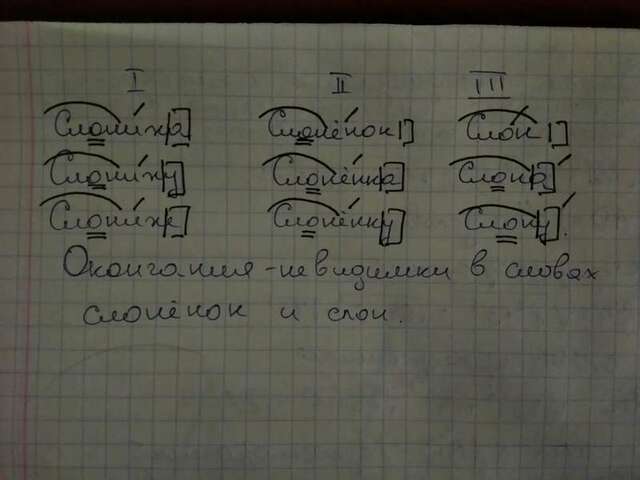 I II III
Слониха Слонёнок Слон
Слониху Слонёнка Слона
Слонихе Слонёнку Слону.
Окончания-невидимки в словах
слонёнок и слон.